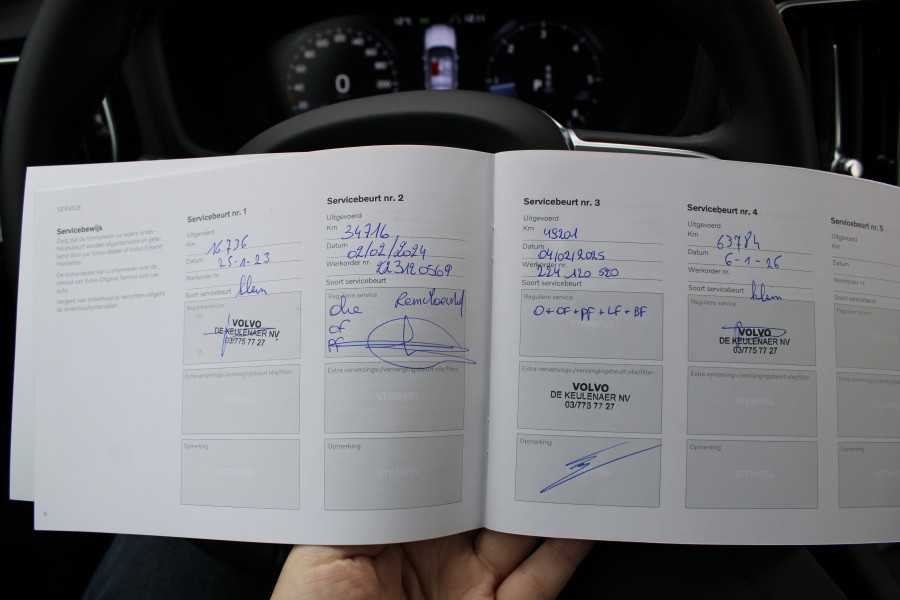 SERVICE
Servicebewijs
Zorg dat de formulieren na iedere onder-
houdsbeurt worden afgestempeld en gete-
kend door uw Volvo-dealer of Volvo Erkend
Hersteller.
De Volvo-dealer kan u informeren over de
inhoud van Volvo Original Service voor uw
auto.
Vergeet niet onderhoud te verrichten volgens
de onderhoudsintervallen.
8
Servicebeurt nr. 1
Uitgevoerd
Km 16736
Datum 25-1-23
Werkorder nr.
Soort servicebeurt klein
Reguliere service
VOLVO
DE KEULENAER NV
03/775 77 27
Extra verversings-/vervangingsbeurt olie/filter:
STEMPEL
Opmerking
STEMPEL
Servicebeurt nr. 2
Uitgevoerd
Km 34716
Datum 02/02/2024
Werkorder nr. 223120569
Soort servicebeurt
Reguliere service
olie
of
pf
Remvloeistof
Extra verversings-/vervangingsbeurt olie/filter:
STEMPEL
Opmerking
STEMPEL
Servicebeurt nr. 3
Uitgevoerd
Km 49201
Datum 04/02/2025
Werkorder nr. 224 120 520
Soort servicebeurt
Reguliere service
O+OF+PF+LF+BF
Extra verversings-/vervangingsbeurt olie/filter:
VOLVO
DE KEULENAER NV
03/775 77 27
Opmerking
Servicebeurt nr. 4
Uitgevoerd
Km 63784
Datum 6-1-26
Werkorder nr.
Soort servicebeurt klein
Reguliere service
VOLVO
DE KEULENAER NV
03/775 77 27
Extra verversings-/vervangingsbeurt olie/filter:
STEMPEL
Opmerking
STEMPEL
Servicebeurt nr. 5
Uitgevoerd
Km
Datum
Werkorder nr.
Soort servicebeurt
Reguliere service
Extra verversings-/vervangingsbeurt
Opmerking
0
P